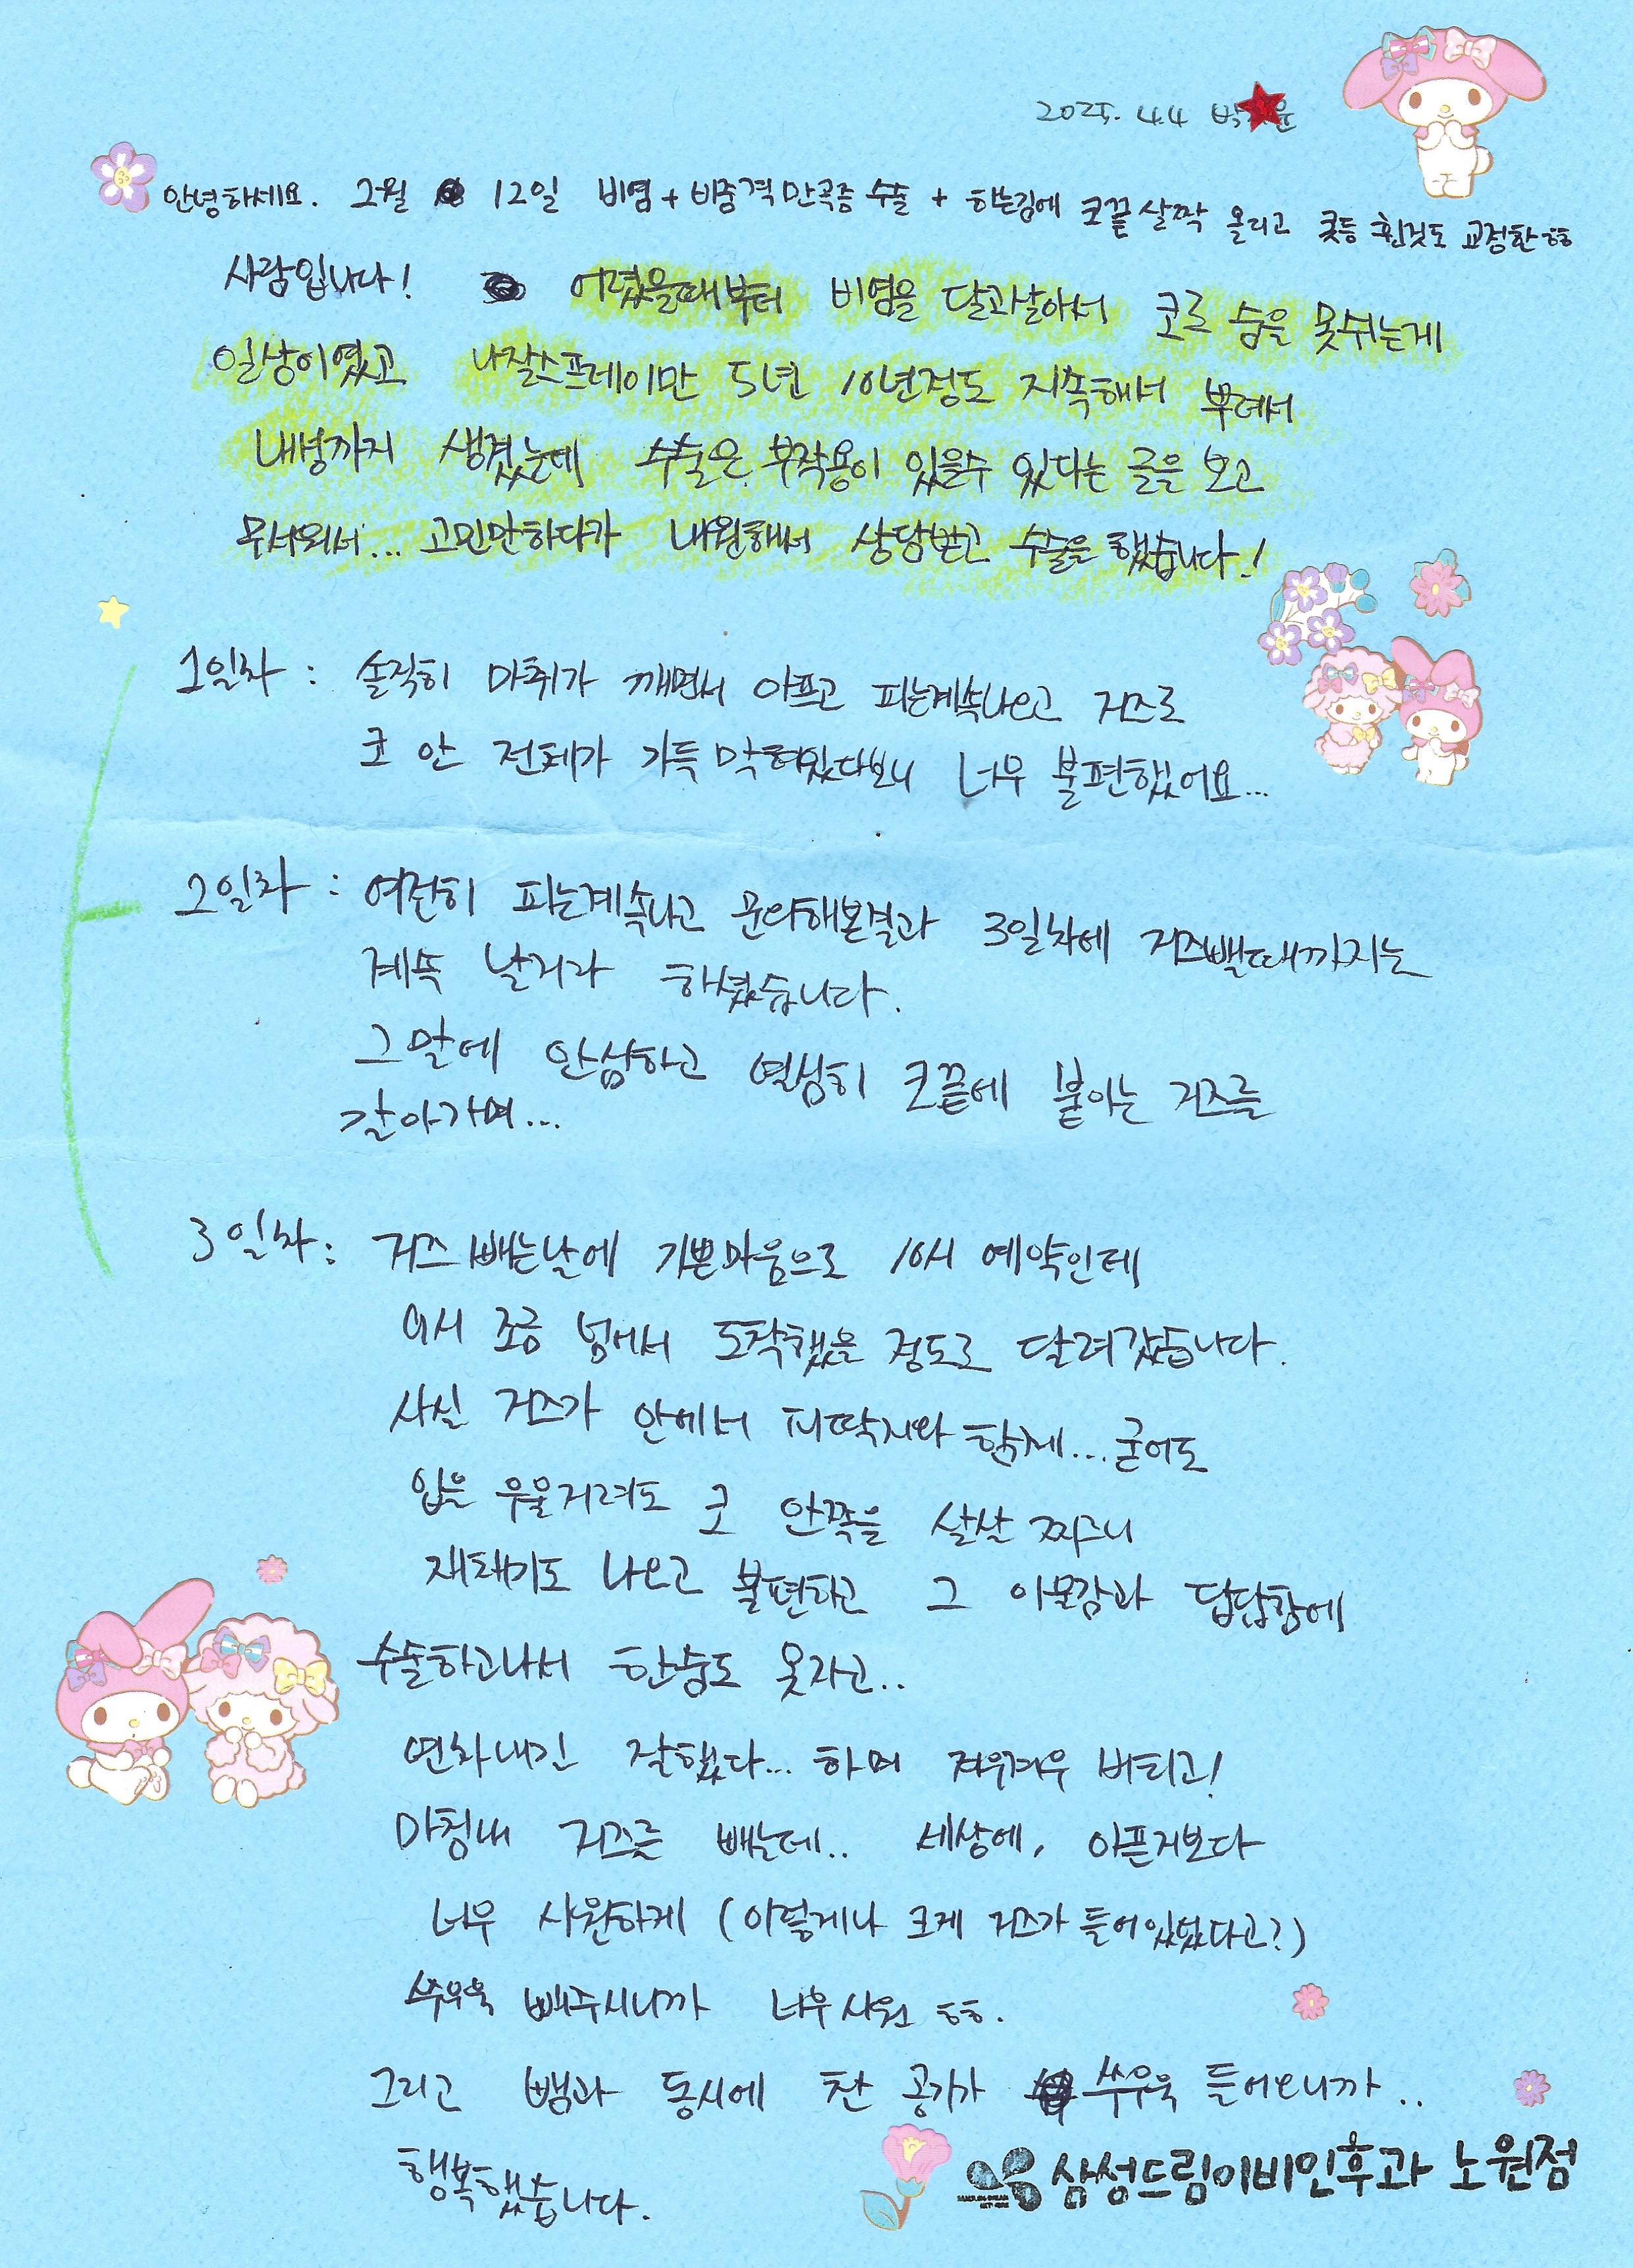 2025. 4.4 박 윤
안녕하세요. 2월 12일 비염 + 비중격만곡증 수술 + 하는김에 코끝 살짝 올리고 콧등 휜것도 교정한 ㅎㅎ
사람입니다! 어렸을때부터 비염을 달고살아서 코로 숨을 못쉬는게
일상이였고 나잘스프레이만 5년 10년정도 지속해서 뿌려서
내성까지 생겼는데 수술은 부작용이 있을수 있다는 글을 보고
무서워서... 고민만하다가 내원해서 상담받고 수술을 했습니다!
1일차 : 솔직히 마취가 깨면서 아프고 피는계속나오고 거즈로
코 안 전체가 가득 막혀있다보니 너무 불편했어요...
2일차 : 여전히 피는계속나고 문의해본결과 3일차에 거즈뺄때까지는
계속 날거라 하셨습니다.
그말에 안심하고 열심히 코끝에 붙이는 거즈를
갈아가며...
3일차 : 거즈 빼는날에 기쁜마음으로 10시 예약인데
9시 조금 넘어서 도착했을 정도로 달려갔습니다.
사실 거즈가 안에서 피딱지와 함께... 굳어도
입을 우물거려도 코 안쪽을 살살 찌르니
재채기도 나오고 불편하고 그 이물감과 답답함에
수술하고나서 한숨도 못자고..
연차내긴 잘했다... 하며 겨우겨우 버티고!
마침내 거즈를 빼는데.. 세상에, 아픈거보다
너무 시원하게 (이렇게나 크게 거즈가 들어있었다고?)
쑤우욱 빼주시니까 너무시원 ㅎㅎ.
그리고 뺌과 동시에 찬 공기가 쑤우욱 들어오니까..
행복했습니다.
삼성드림이비인후과 노원점